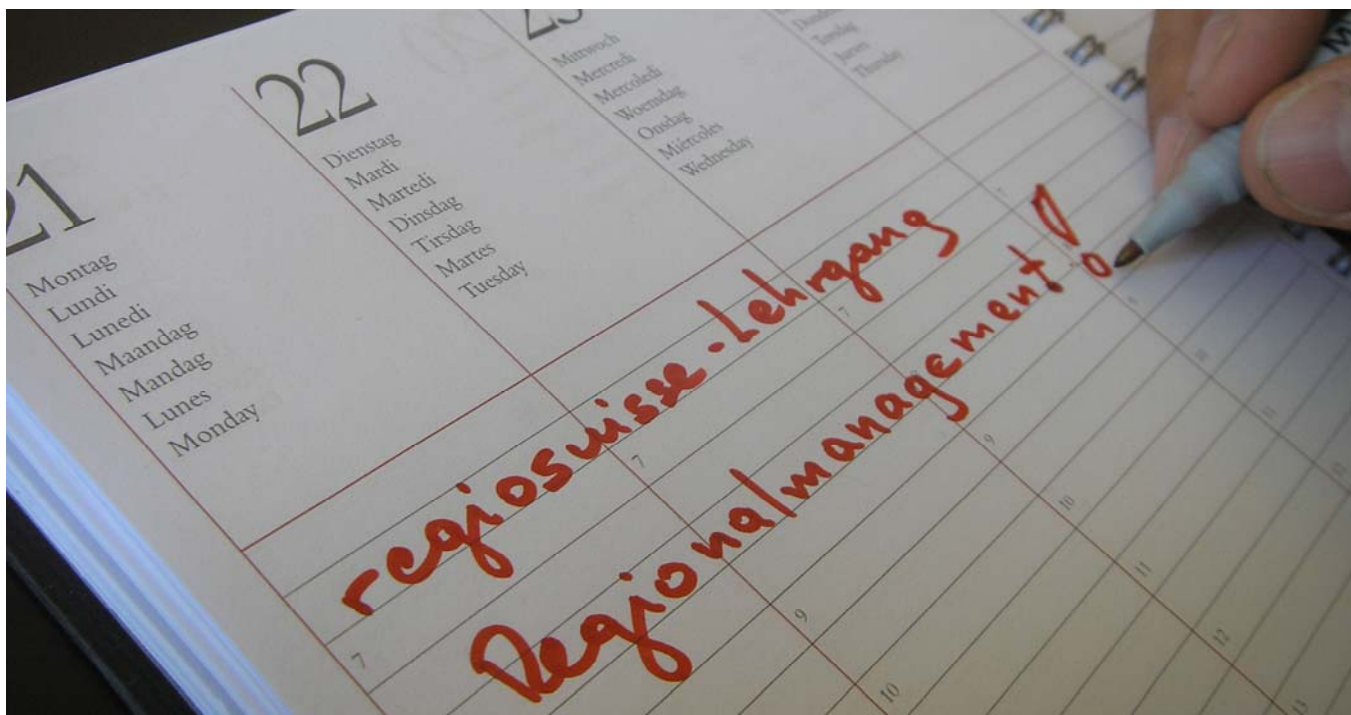 21
Montag
Lundi
Lunedi
Maandag
Mandag
Lunes
Monday
22
Dienstag
Mardi
Martedi
Dinsdag
Tirsdag
Martes
Tuesday
23
Mittwoch
Mercredi
Mercoledi
Woensdag
Onsdag
Miércoles
Wednesday
Torsdag
Jueves
Thursday
regiosuisse-Lehrgang
Regionalmanagement!
7
7
7
7
9
9
9
10
10
10
11
11
12
13